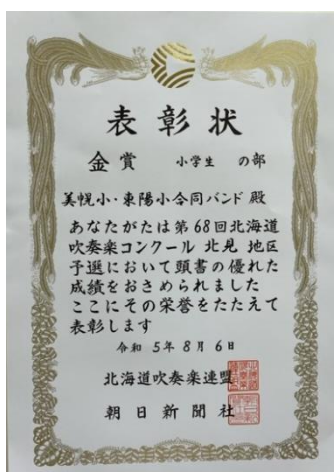 表彰状
金賞 小学生 の部
美幌小・東陽小合同バンド 殿
あなたがたは第68回北海道
吹奏楽コンクール 北見 地区
予選において頭書の優れた
成績をおさめられました
ここにその栄誉をたたえて
表彰します
令和 5年 8月 6日
北海道吹奏楽連盟
朝日新聞社